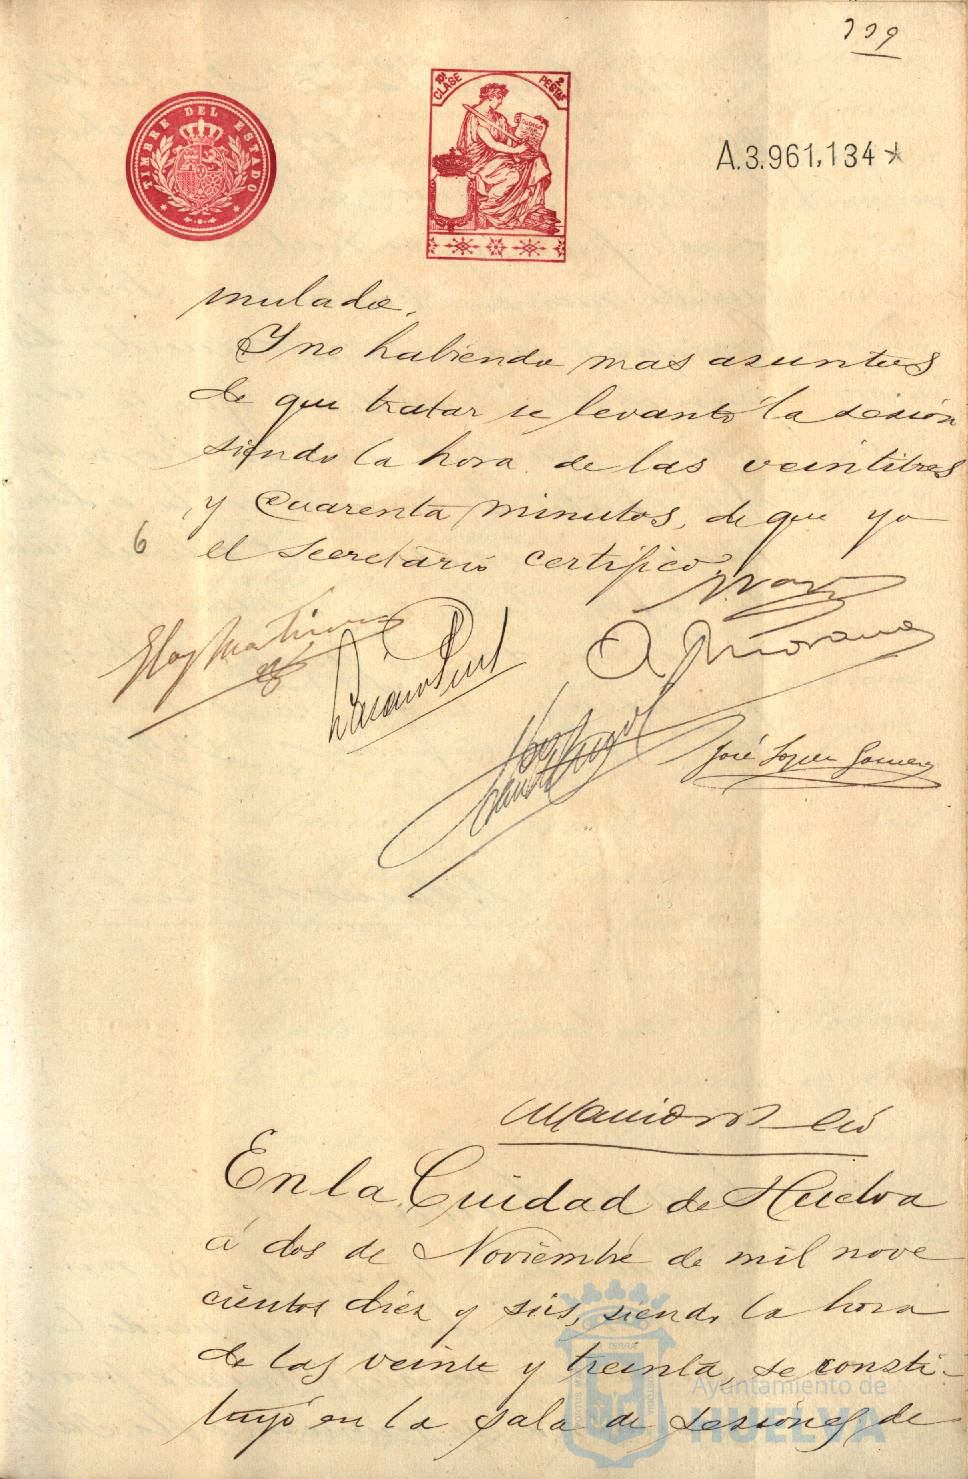 TIMBRE DEL ESTADO
10ª CLASE 2 PESETAS
A.3.961,134*
mulado.
Y no habiendo mas asuntos
de que tratar se levantó la sesión
siendo la hora de las veintitres
y cuarenta minutos, de que yo
6
el Secretario certifico.
Eloy Martinez
A. Morano
José Lopez Gomez
En la Ciudad de Huelva
á dos de Noviembre de mil nove
cientos diez y seis, siendo la hora
de las veinte y treinta, se consti-
tuyó en la sala de sesiones de
Ayuntamiento de
HUELVA